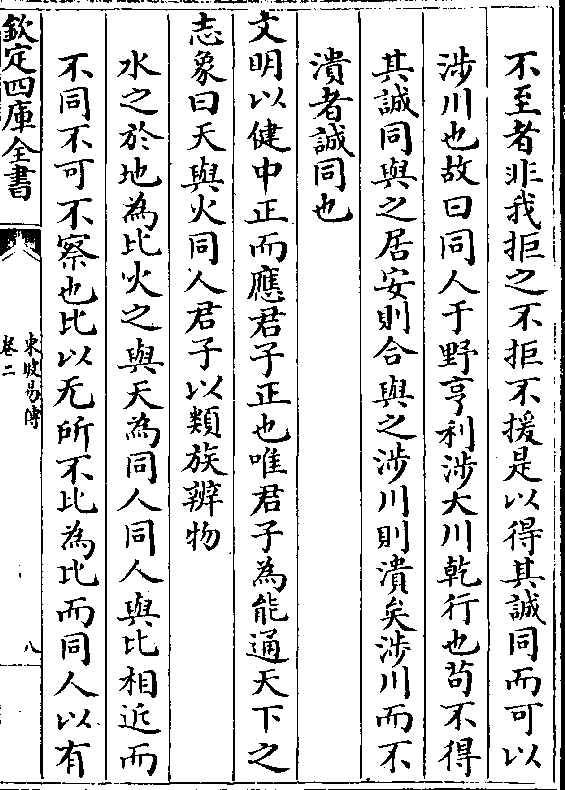 不至者非我拒之不拒不援是以得其誠同而可以
涉川也故曰同人于野亨利涉大川乾行也苟不得
其誠同與之居安則合與之涉川則潰矣涉川而不
潰者誠同也
文明以健中正而應君子正也唯君子為能通天下之
志象曰天與火同人君子以類族辨物
水之於地為比火之與天為同人同人與比相近而
不同不可不察也比以无所不比為比而同人以有
欽定四庫全書
東坡易傳
卷二
八